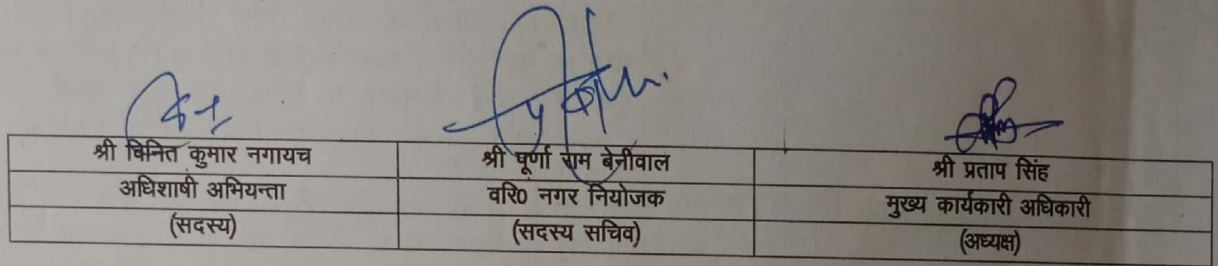 श्री विनित कुमार नगायच श्री पूर्णा राम बेनीवाल श्री प्रताप सिंह
अधिशाषी अभियन्ता वरि0 नगर नियोजक मुख्य कार्यकारी अधिकारी
(सदस्य) (सदस्य सचिव) (अध्यक्ष)